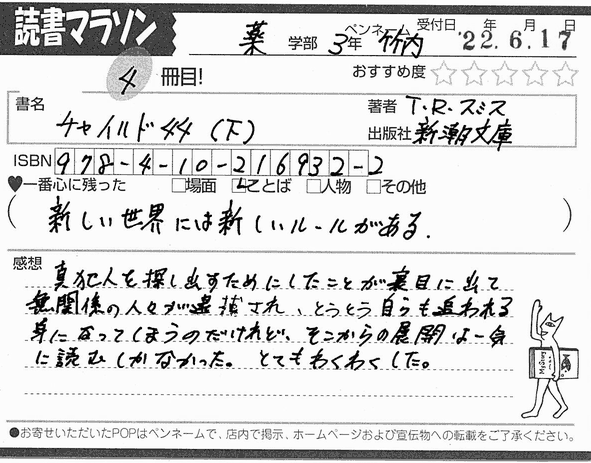 読書マラソン
薬 学部 3年 ペンネーム 竹内 受付日 年 月 日 '22.6.17
4 冊目! おすすめ度 ☆☆☆☆☆
書名 チャイルド44 (下)
著者 T・R・スミス
出版社 新潮文庫
ISBN 978-4-10-216932-2
♥一番心に残った □場面 ☑ことば □人物 □その他
(新しい世界には新しいルールがある.)
感想
真犯人を探し出すためにしたことが裏目に出て
無関係の人々が逮捕され、とうとう自らも追われる
身になってしまうのだけれど、そこからの展開は一気
に読むしかなかった。とてもわくわくした。
●お寄せいただいたPOPはペンネームで、店内で掲示、ホームページおよび宣伝物への転載をご了承ください。